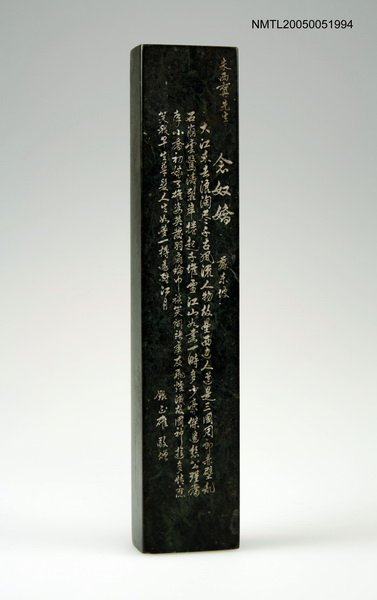 NMTL20050051994
朱西甯先生
念奴嬌 蘇東坡
大江東去浪淘尽千古風流人物故壘西邊人道是三國周郎赤壁乱
石崩雲驚濤裂岸捲起千堆雪江山如畫一時多少豪傑遙想公瑾當
年小喬初嫁了雄姿英發羽扇綸巾談笑間強虜灰飛煙滅故國神遊多情應
笑我早生華髮人生如夢一樽還酹江月
正雄 敬贈